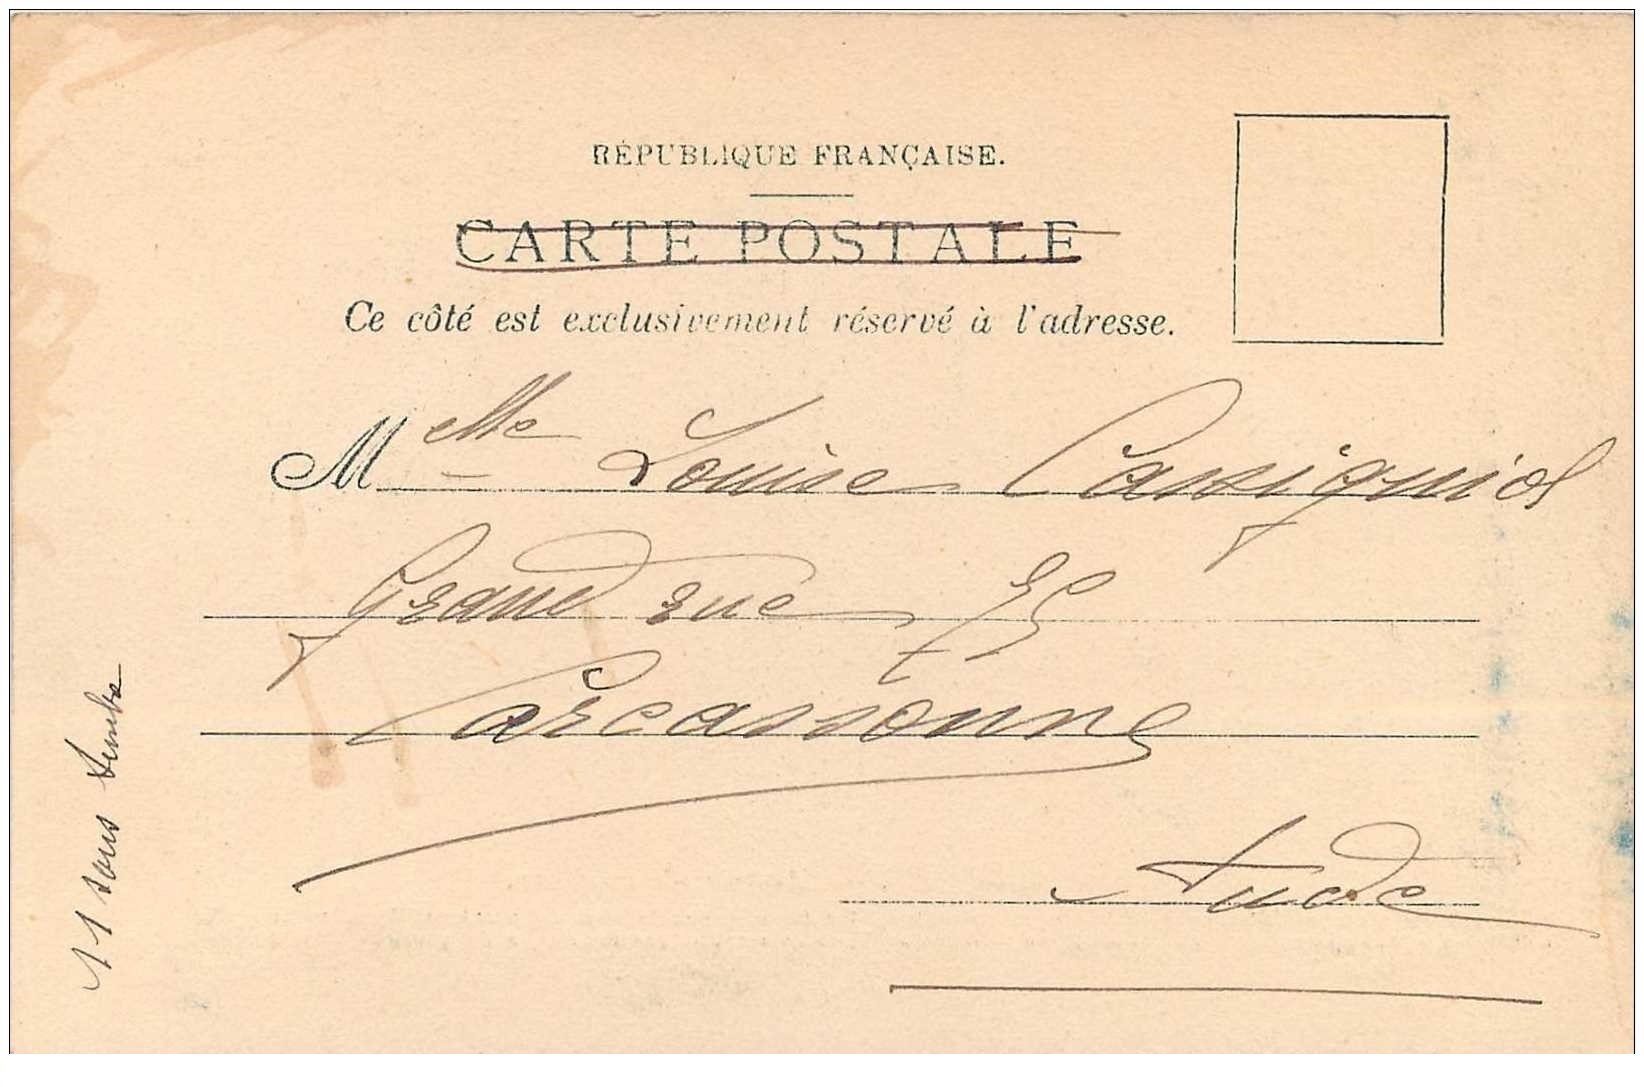 RÉPUBLIQUE FRANÇAISE.
CARTE POSTALE
Ce côté est exclusivement réservé à l'adresse.
Melle Louise Cassignol
Grand rue 75
Carcassonne
Aude
11 sous